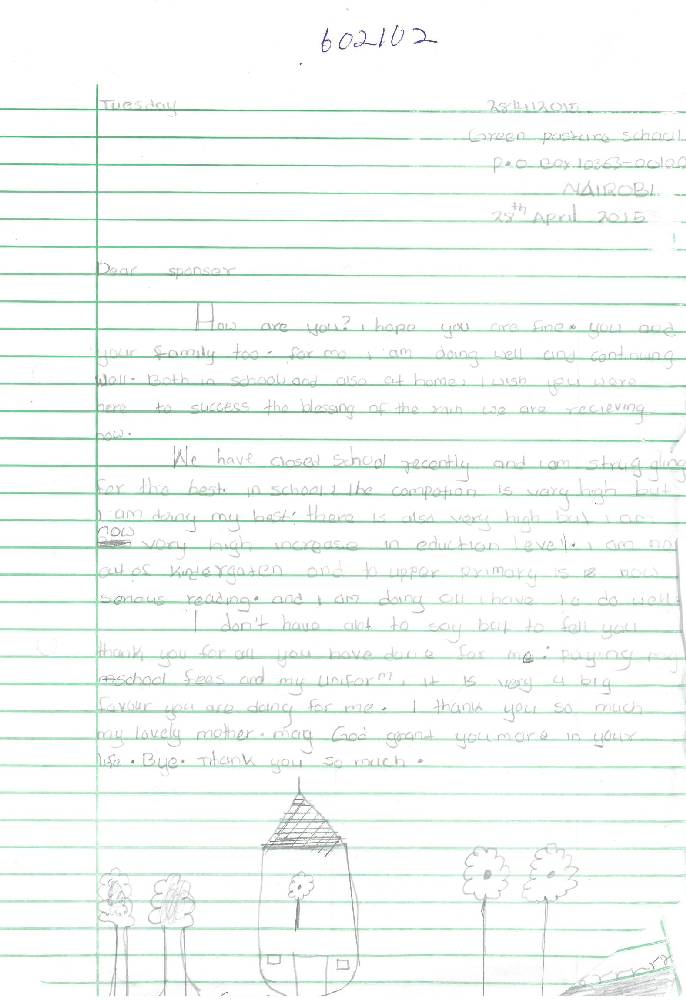 602102
Tuesday 28/4/2015
Green pasture school
P.O BOX 10363-00100
NAIROBI
28th April 2015
Dear sponser
How are you? i hope you are fine. you and
your family too. for me i am doing well and continuing
well. Both in school and also at home, i wish you were
here to success the blessing of the rain we are recieving
now.
We have closed school recently and i am struggling
for the best in school, the compation is very high but
i am doing my best. there is also very high but i am
now very high increase in eduction level. i am now
out of kindergaten and in upper primary is now
serious reading. and i am doing all i have to do well
I don't have alot to say but to tell you
thank you for all you have done for me. paying my
school fees and my uniform, it is very a big
favour you are doing for me. I thank you so much
my lovely mother. may God grant you more in your
life. Bye. Thank you so much.